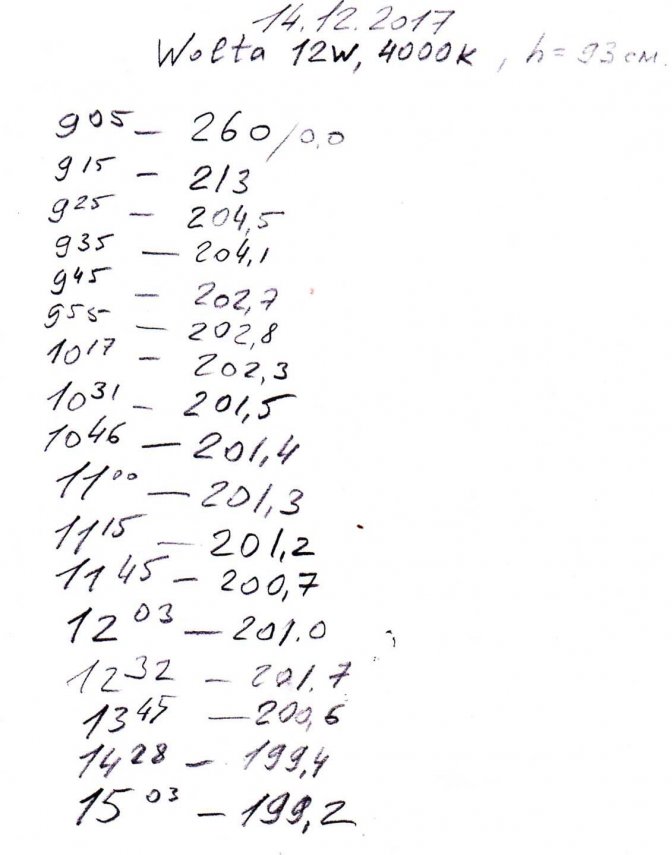 14.12.2017
Wolta 12W, 4000K, h=93см.
9⁰⁵ — 260/0,0
9¹⁵ — 213
9²⁵ — 204,5
9³⁵ — 204,1
9⁴⁵ — 202,7
9⁵⁵ — 202,8
10¹⁷ — 202,3
10³¹ — 201,5
10⁴⁶ — 201,4
11⁰⁰ — 201,3
11¹⁵ — 201,2
11⁴⁵ — 200,7
12⁰³ — 201.0
12³² — 201.7
13⁴⁵ — 200,6
14²⁸ — 199,4
15⁰³ — 199,2